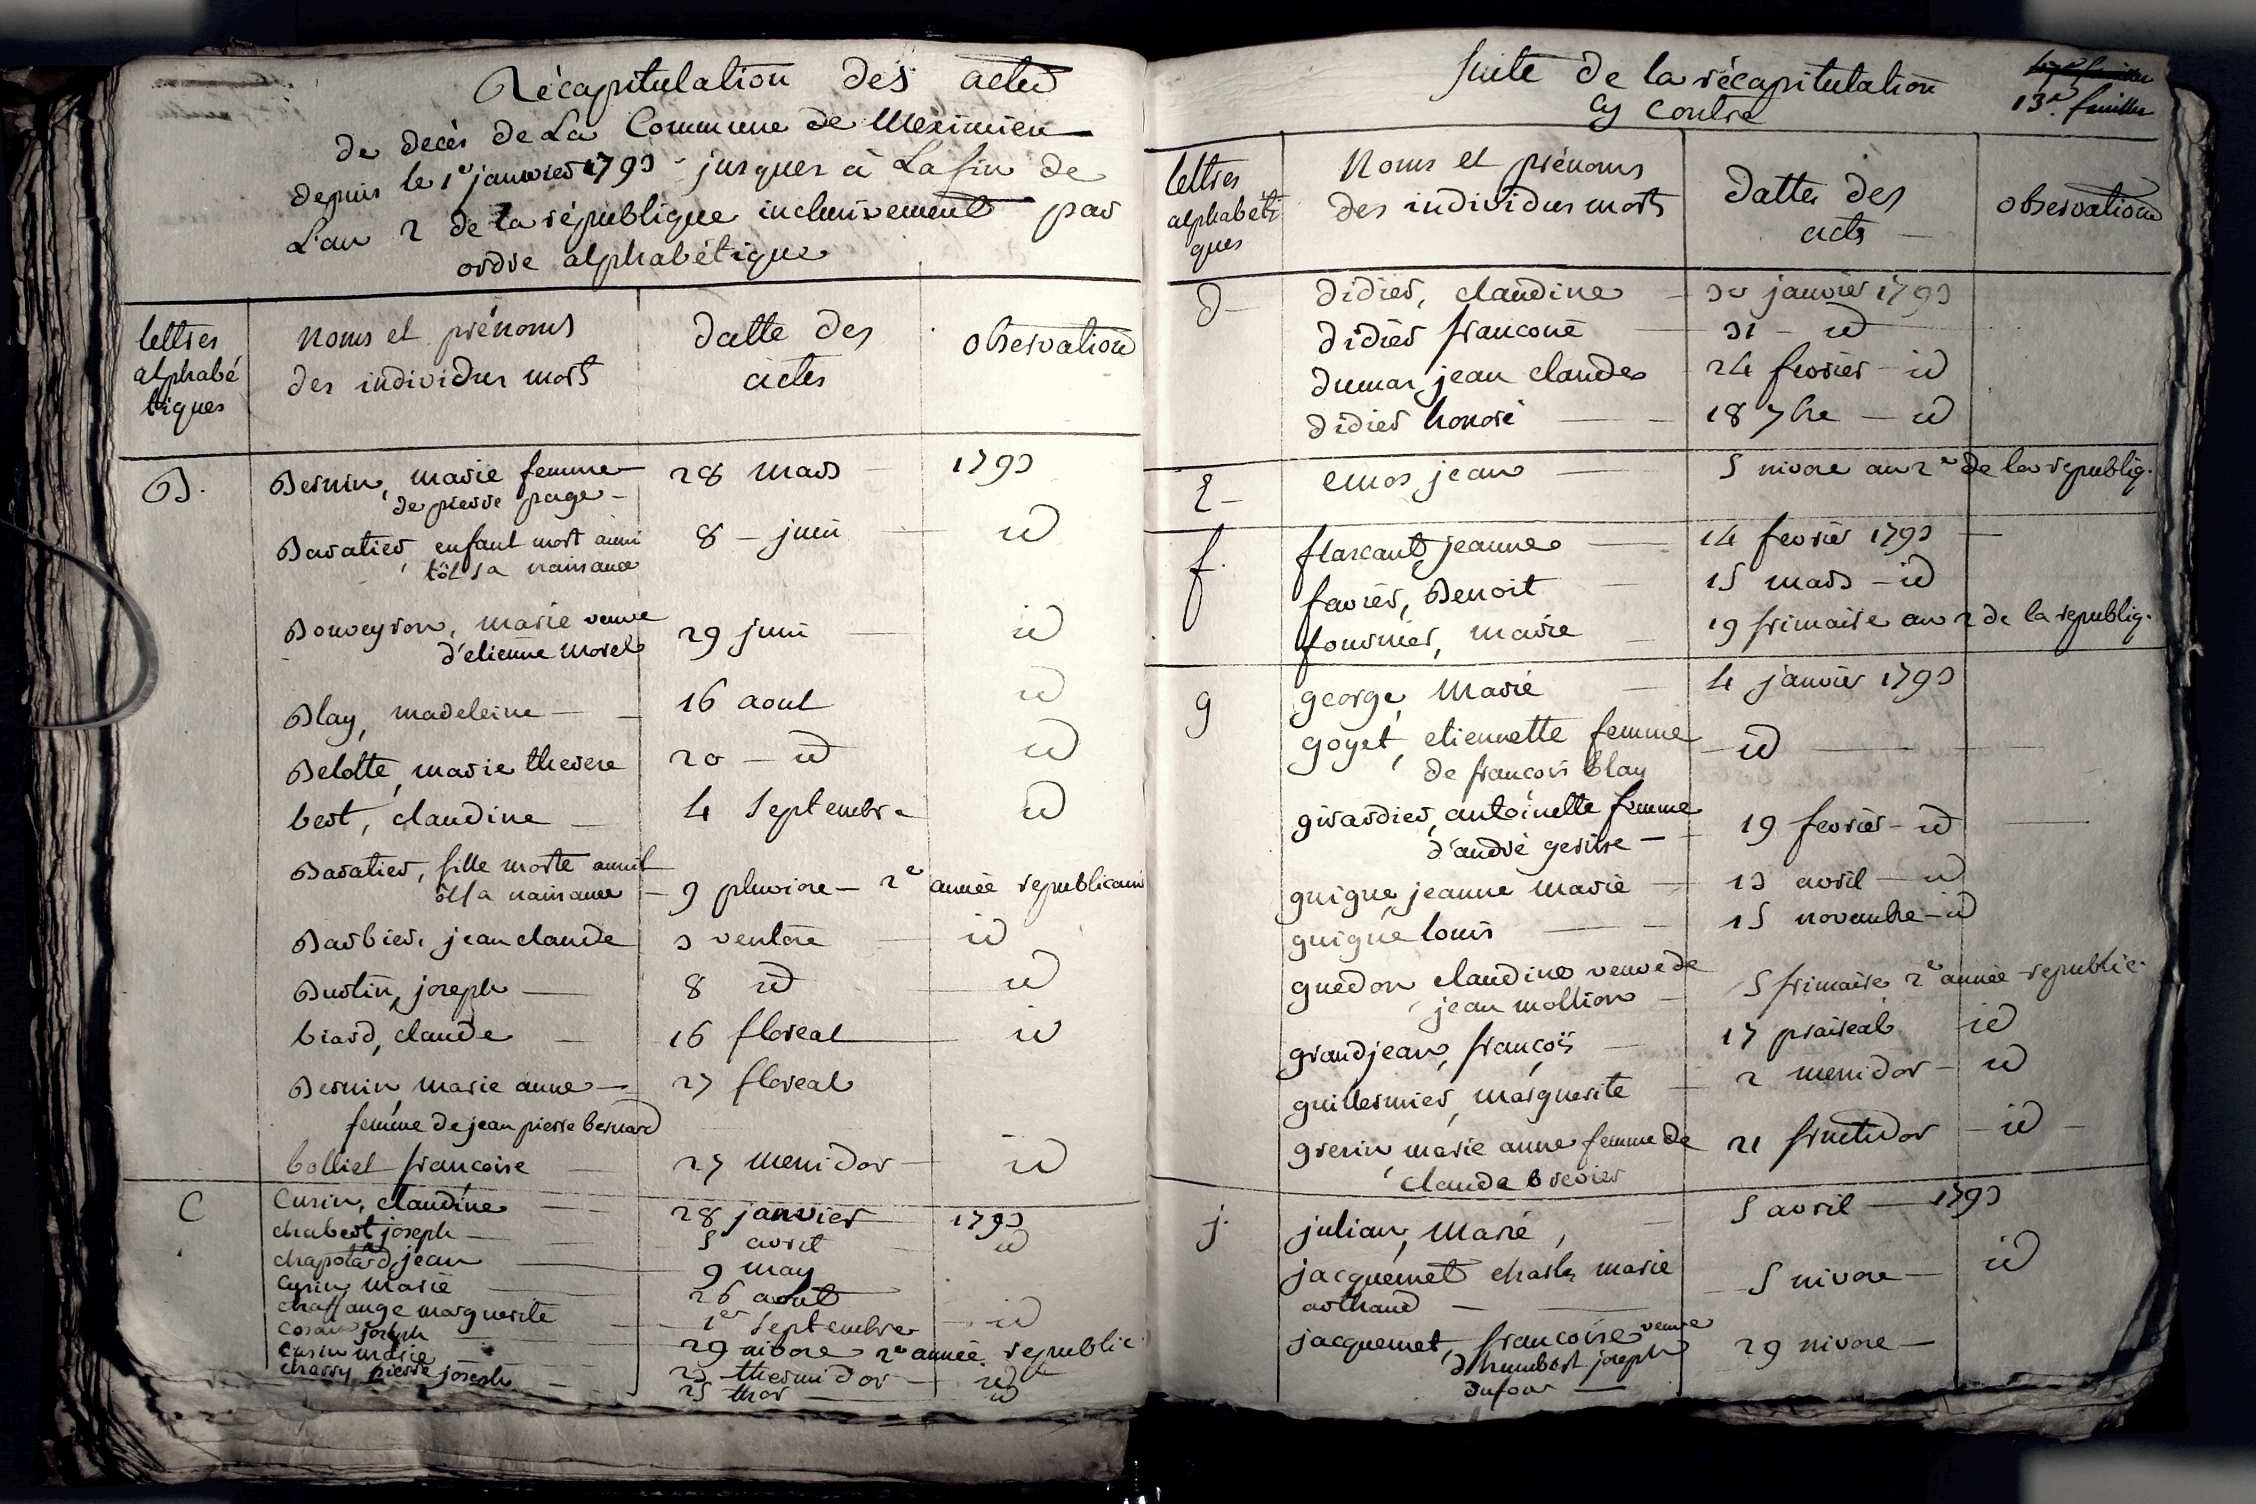 Récapitulation des actes
de decès de La Commune de Meximieu
depuis le 1er janvier 1793 jusques à La fin de
L'an 2 de la république inclusivement par
ordre alphabétique
lettres alphabé tiques
noms et prénoms des individus mort
datte des actes
observation
B.
Bernin, marie femme 28 mars 1793
de pierre page
Baratier, enfant mort aussi 8 juin id
tôt sa naissance
Bouveyron, marie veuve 29 juin id
d'etienne morel
Blay, madeleine 16 aout id
Belotte, marie therese 20 id id
bert, claudine 4 Septembre id
Baratier, fille morte aussit
ôt sa naissance 9 pluviose 2e année republicain
Barbier, jean claude 3 ventose id
Bustin, joseph 8 id id
biard, claude 16 floreal id
Bernin, marie anne 27 floreal
femme de jean pierre bernard
bolliet francoise 27 messidor id
C
Cusin, claudine 28 janvier 1793
chabert joseph 5 avril id
chapotard, jean 9 may
cusin marie 26 aout
chaffange marguerite 1er Septembre id
joseph 29 nivose 2e année republic.
cusin marie 23 thermidor id
charry pierre joseph 25 ther id
Suite de la récapitulation
Cy Contre
13e feuillet
lettres alphabéti ques
Noms et prénoms des individus morts
datte des acts
observation
d
didier, claudine 30 janvier 1793
didier francoise 31 id
dumas, jean claude 24 fevrier id
didier honoré 18 7bre id
E
emos jean 5 nivose an 2e de la republiq.
f.
flascaut, jeanne 14 fevrier 1793
favier, Benoit 15 mars id
fournier, marie 19 frimaire an 2 de la republiq.
g
george, Marie 4 janvier 1793
goyet, etiennette femme id
de françois blay
girardier, antoinette femme 19 fevrier id
d'andré
guigue, jeanne marie 13 avril id
guigue louis 15 novembre id
guedon claudine veuve de 5 frimaire 2e année republic.
jean mollion
grandjean, françois 17 prairéal id
guillermier, marguerite 2 messidor id
gresin, marie anne femme de 21 fructidor id
claude brevier
j.
julian, Marie, 5 avril 1793
jacquemet charles marie 5 nivose id
arthaud
jacquemet, francoise veuve 29 nivose
d'humbert joseph
dufour